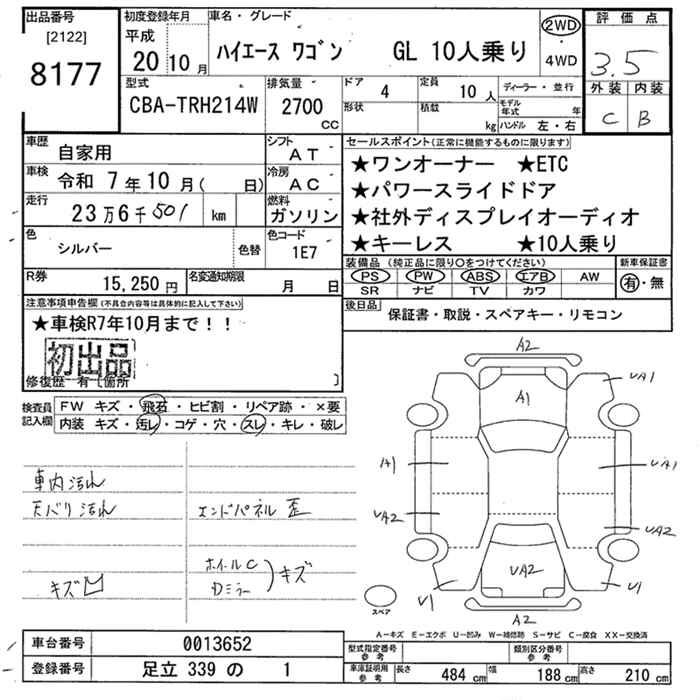 出品番号
[2122]
8177
初度登録年月
平成
20 10 月
車名・グレード
ハイエース ワゴン GL 10人乗り
2WD
・
4WD
評価点
3.5
外装 内装
C B
型式
CBA-TRH214W
排気量
2700
cc
ドア
4
形状
定員
10 人
積載
kg
ディーラー・並行
モデル年式 年
ハンドル 左・右
車歴
自家用
シフト
AT
車検
令和 7 年 10 月( 日)
冷房
AC
走行
23 万 6 千 501 km
燃料
ガソリン
色
シルバー
色替
色コード
1E7
R券
15,250 円
名変通知期限
月 日
セールスポイント(正常に機能するものに限り)
★ワンオーナー ★ETC
★パワースライドドア
★社外ディスプレイオーディオ
★キーレス ★10人乗り
装備品(純正品に限り○をつけてください)
PS PW ABS エアB AW
SR ナビ TV カワ
新車保証書
有・無
後日品
保証書・取説・スペアキー・リモコン
注意事項申告欄(不具合内容等は具体的に記入して下さい)
★車検R7年10月まで!!
初出品
修復歴 有〔箇所 〕
検査員記入欄
FW キズ・飛石・ヒビ割・リペア跡・×要
内装 キズ・汚レ・コゲ・穴・スレ・キレ・破レ
車内汚れ
天バリ汚れ
エンドパネル歪
キズ凹
ホイールC
Dミラー
キズ
A2
A1
UA1
A1
UA1
UA2
UA2
UA2
U1
U1
A2
スペア
A-キズ E-エクボ U-凹み W-補修跡 S-サビ C-腐食 XX-交換済
車台番号
0013652
登録番号
足立 339 の 1
型式指定番号
参考
類別区分番号
参考
車庫証明用
参考
長さ 484 cm 幅 188 cm 高さ 210 cm